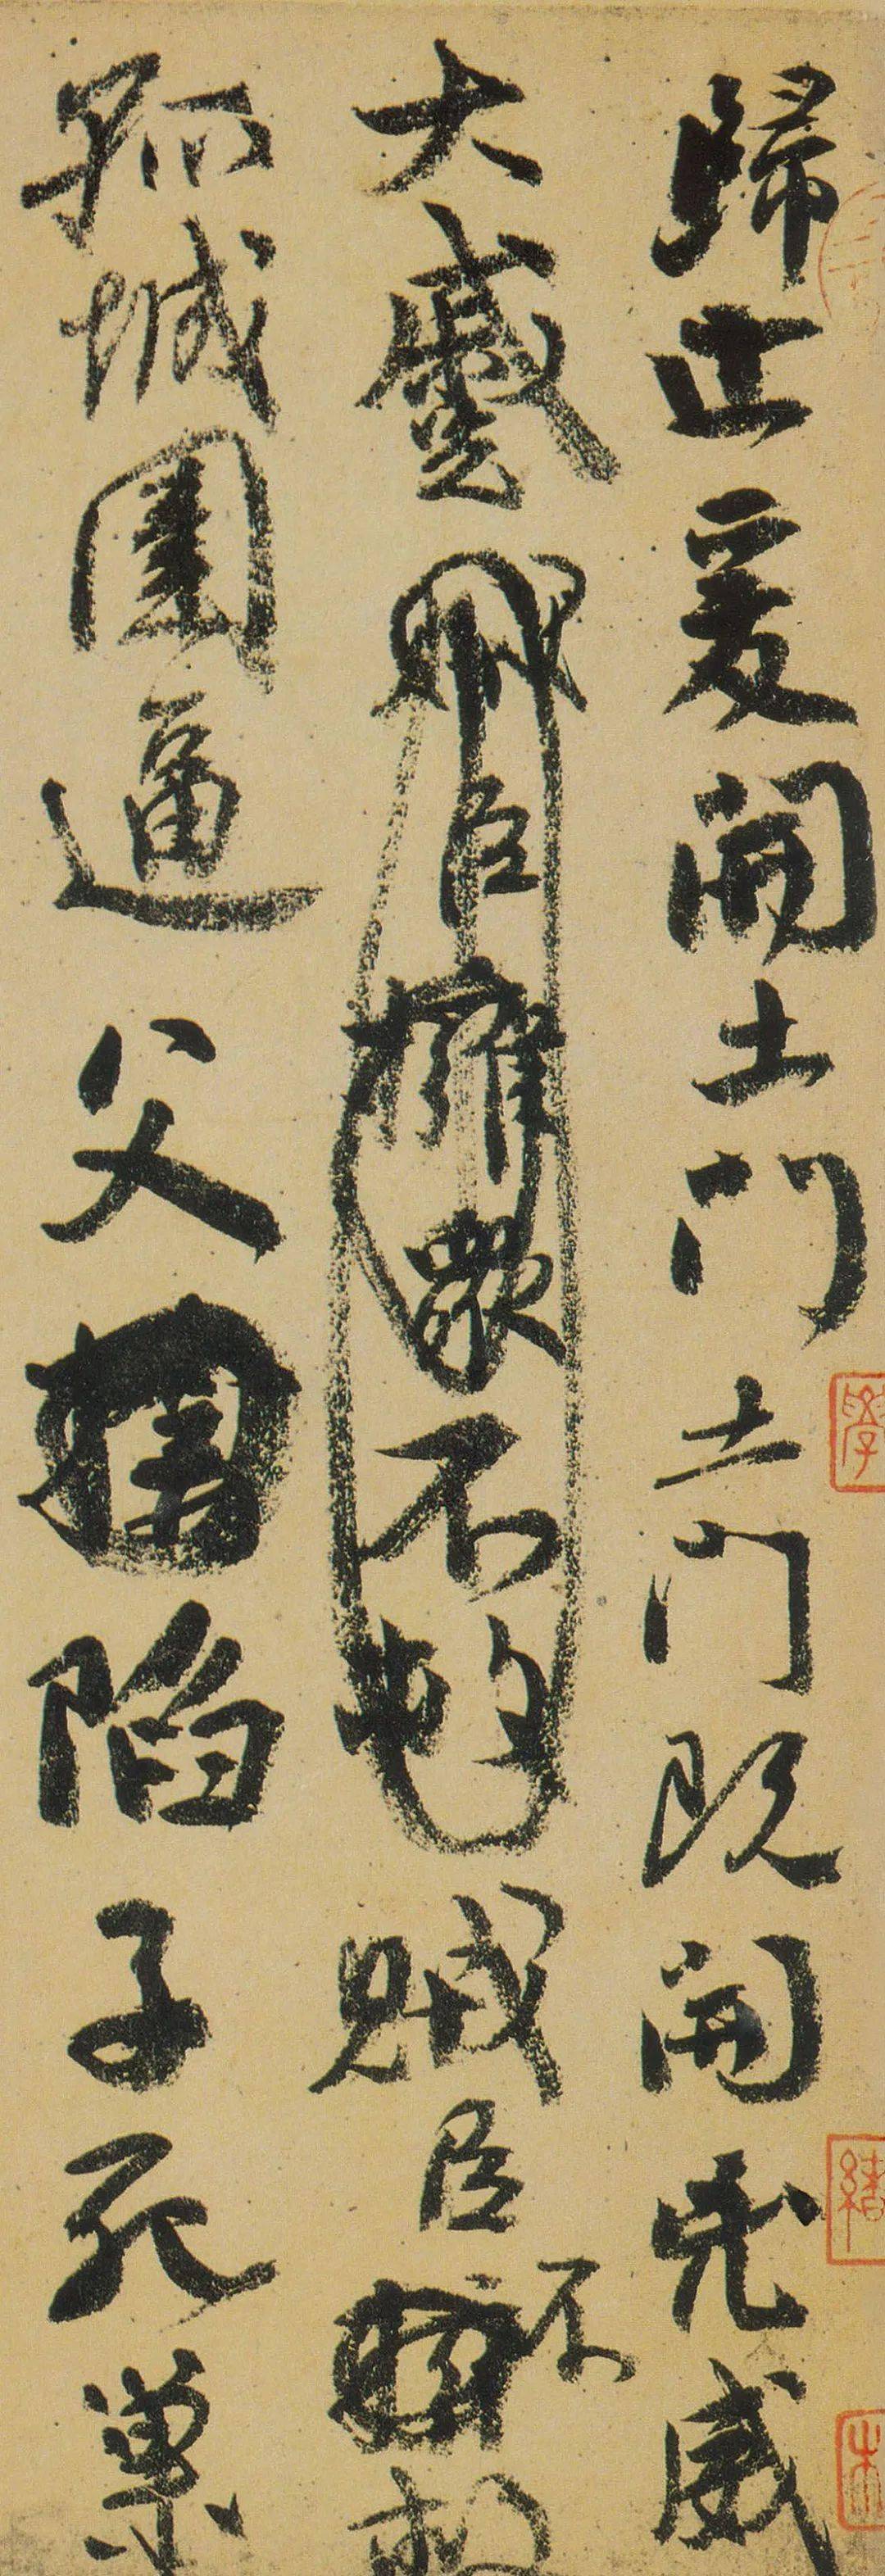 歸止爰開土門土門既開凶威
大蹙賊臣擁眾不救賊臣不救
孤城圍逼父陷子死巢